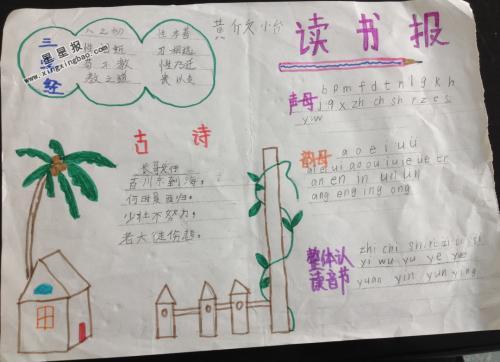 三字经
人之初 性本善
性相近 习相远
苟不教 性乃迁
教之道 贵以专
星星报
www.xingxingbao.com
读书报
声母
b p m f d t n l g k h
j q x zh ch sh r z c s
y w
古诗
长歌行
百川东到海,
何时复西归。
少壮不努力,
老大徒伤悲。
韵母
a o e i u ü
ai ei ui ao ou iu ie üe er
an en in un ün
ang eng ing ong
整体认读音节
zhi chi shi ri zi ci si
yi wu yu ye yue
yuan yin yun ying